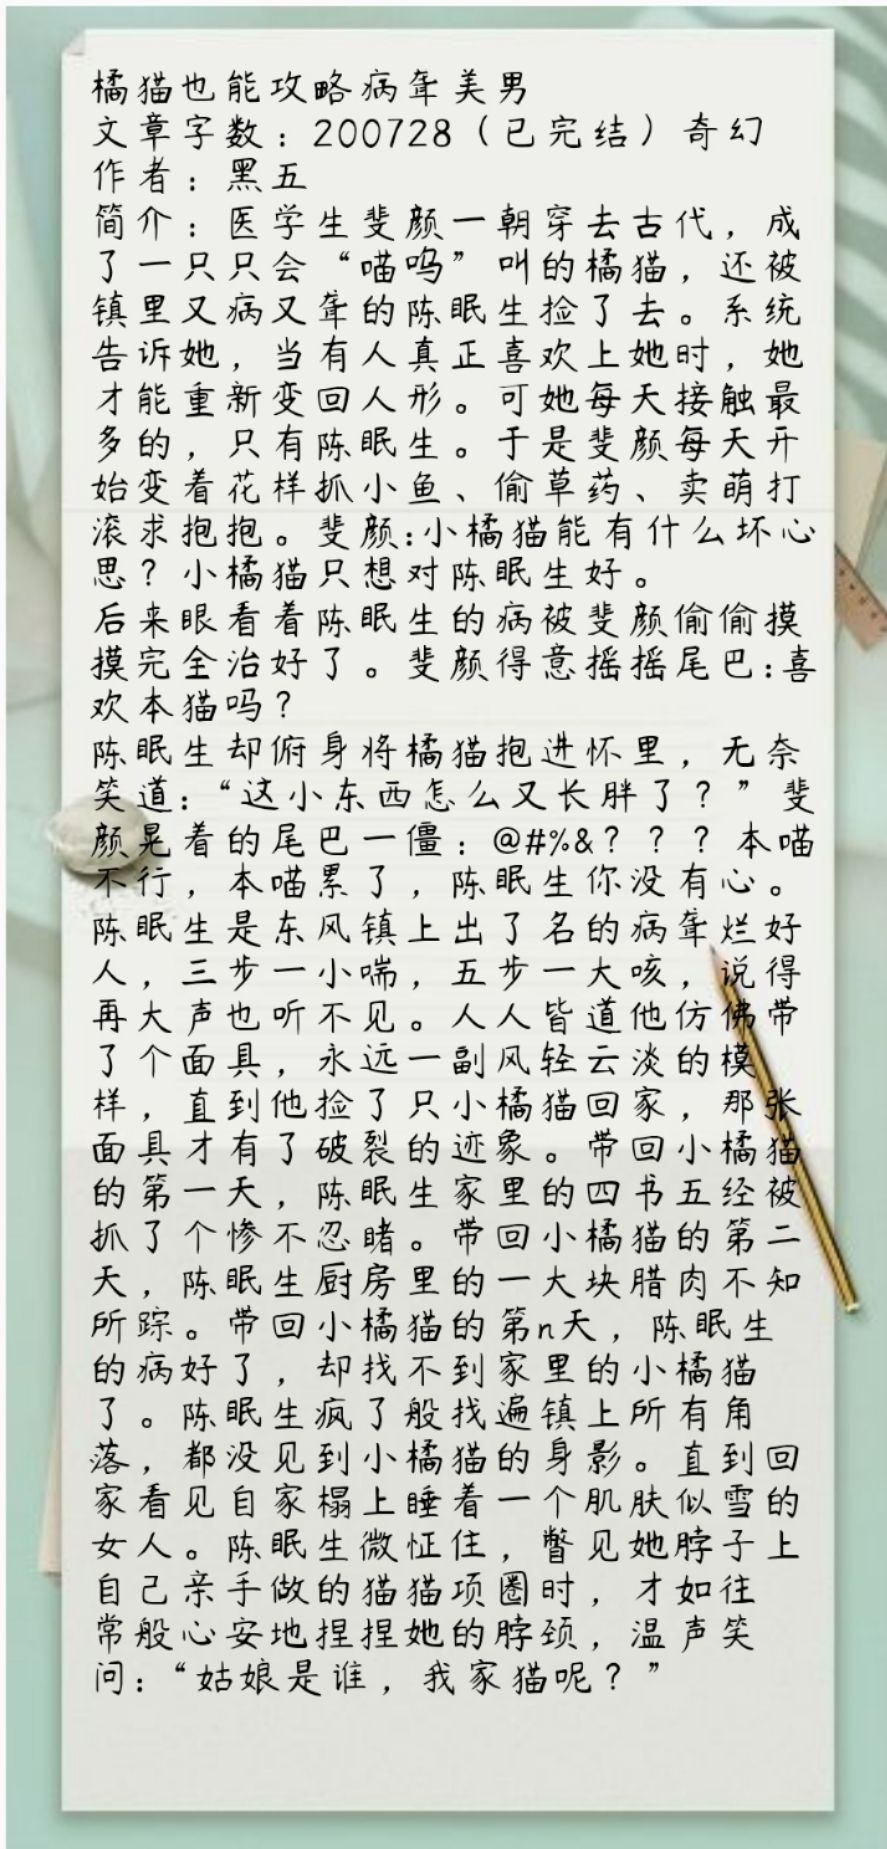 橘猫也能攻略病聋美男
文章字数：200728（已完结）奇幻
作者：黑五
简介：医学生斐颜一朝穿去古代，成
了一只只会“喵呜”叫的橘猫，还被
镇里又病又聋的陈眠生捡了去。系统
告诉她，当有人真正喜欢上她时，她
才能重新变回人形。可她每天接触最
多的，只有陈眠生。于是斐颜每天开
始变着花样抓小鱼、偷草药、卖萌打
滚求抱抱。斐颜：小橘猫能有什么坏心
思？小橘猫只想对陈眠生好。
后来眼看着陈眠生的病被斐颜偷偷摸
摸完全治好了。斐颜得意摇摇尾巴：喜
欢本猫吗？
陈眠生却俯身将橘猫抱进怀里，无奈
笑道：“这小东西怎么又长胖了？”斐
颜晃着的尾巴一僵：@#%&？？？本喵
不行，本喵累了，陈眠生你没有心。
陈眠生是东风镇上出了名的病聋烂好
人，三步一小喘，五步一大咳，说得
再大声也听不见。人人皆道他仿佛带
了个面具，永远一副风轻云淡的模
样，直到他捡了只小橘猫回家，那张
面具才有了破裂的迹象。带回小橘猫
的第一天，陈眠生家里的四书五经被
抓了个惨不忍睹。带回小橘猫的第二
天，陈眠生厨房里的一大块腊肉不知
所踪。带回小橘猫的第n天，陈眠生
的病好了，却找不到家里的小橘猫
了。陈眠生疯了般找遍镇上所有角
落，都没见到小橘猫的身影。直到回
家看见自家榻上睡着一个肌肤似雪的
女人。陈眠生微怔住，瞥见她脖子上
自己亲手做的猫猫项圈时，才如往
常般心安地捏捏她的脖颈，温声笑
问：“姑娘是谁，我家猫呢？”